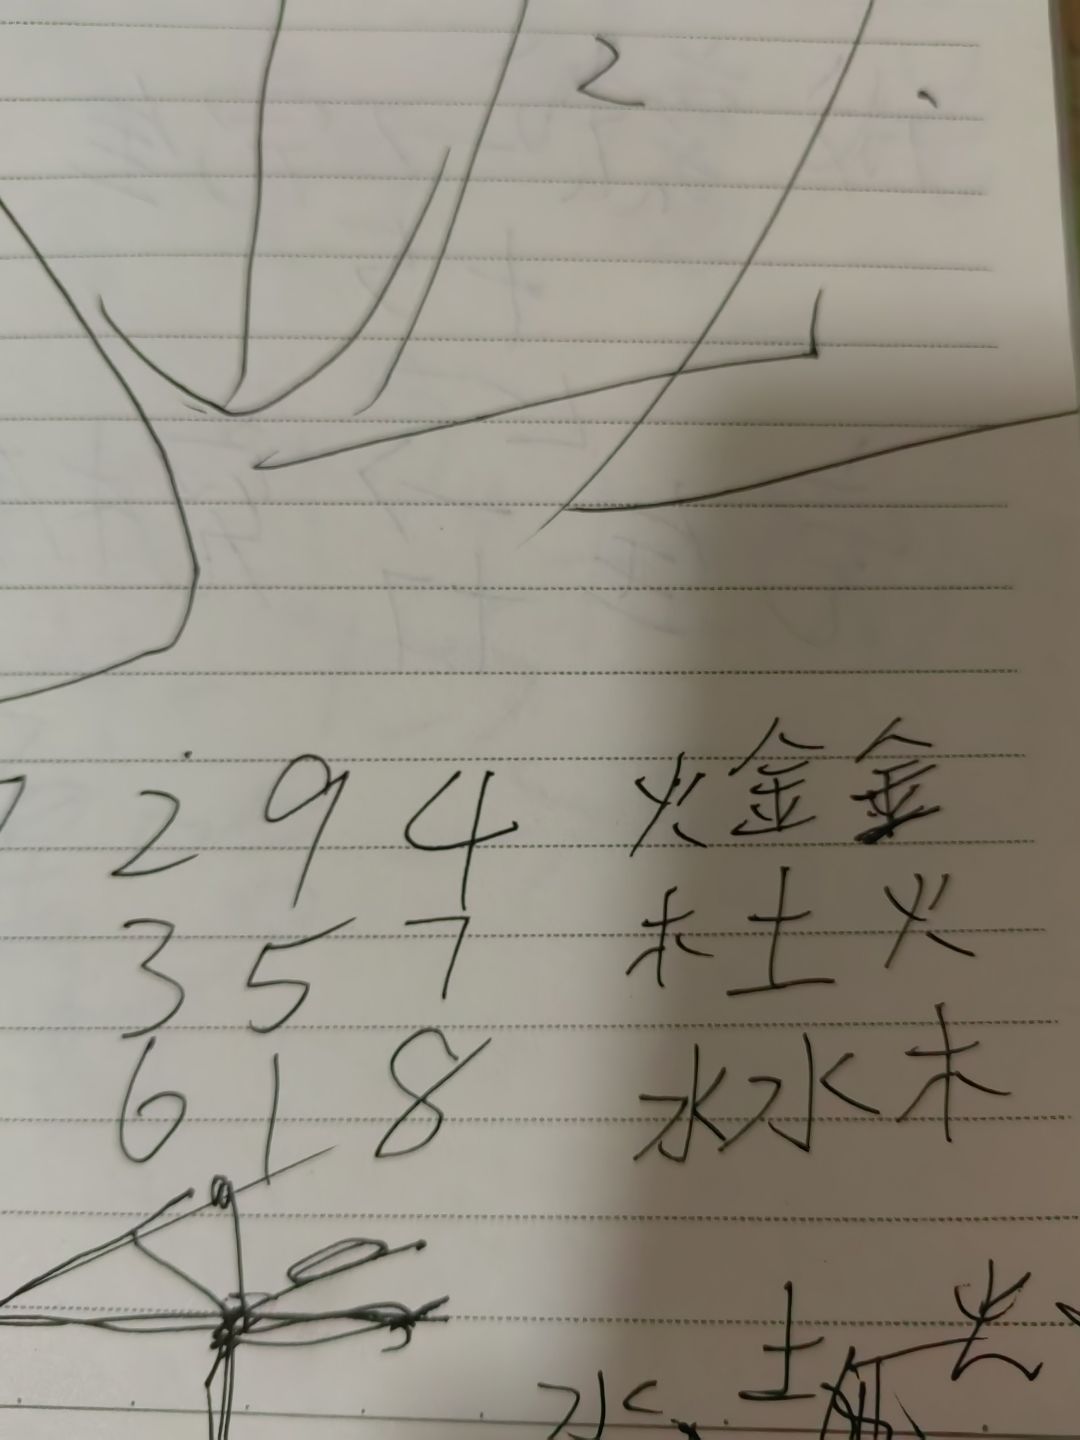 2
2 9 4 火 金 金
3 5 7 木 土 火
6 1 8 水 水 木
土
水